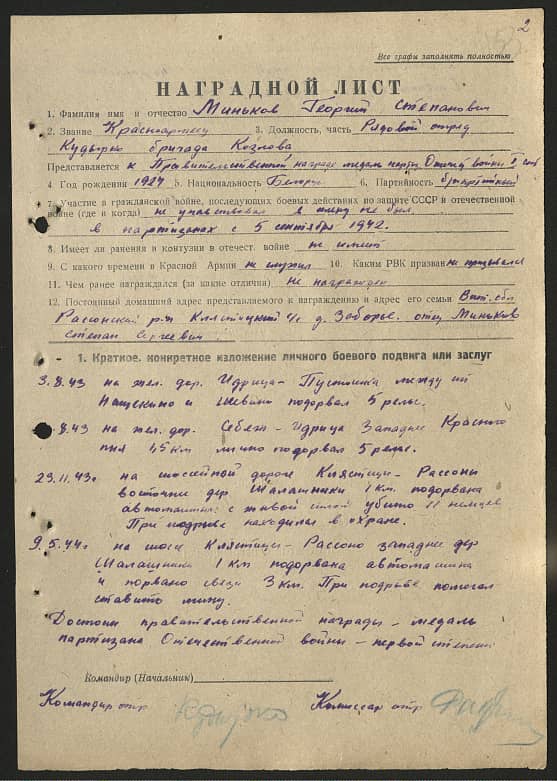 2
Все графы заполнять полностью
НАГРАДНОЙ ЛИСТ
1. Фамилия имя и отчество Миньков Георгий Степанович
2. Звание Красноармеец 3. Должность, часть Рядовой отряд
Кудырко бригада Козлова
Представляется к Правительственной награде медаль Отеч войны
4 Год рождения 1924 5. Национальность Белорус 6. Партийность беспартийный
7. Участие в гражданской войне, последующих боевых действиях по защите СССР и отечественной
войне (где и когда) не участвовал в плену не был
в партизанах с 5 сентября 1942.
8. Имеет ли ранения и контузии в отечест. войне не имеет
9. С какого времени в Красной Армии не служил 10. Каким РВК призван не призывался
11. Чем ранее награждался (за какие отличия) не награжден
12. Постоянный домашний адрес представляемого к награждению и адрес его семьи Вит. обл
Россонский р-н Клястицкий с/с д. Заборье. отец Миньков
Степан Сергеевич
1. Краткое, конкретное изложение личного боевого подвига или заслуг
3.8.43 на жел. дор. Идрица – Пустошка между
Нащекино и Шевино подорвал 5 рельс.
8.43 на жел. дор. Себеж – Идрица Западнее Красного
пня лично подорвал 5 рельс.
23.11.43г на шоссейной дороге Клястицы – Россоны
восточнее дер Шалашники 1 км. подорвана
автомашина с живой силой убито 11 немцев
При подрыве находился в охране.
9.5.44г на шоссе Клястицы – Россоно западнее дер
Шалашники 1 км подорвана автомашина
и порвано связи 3 км. При подрыве помогал
ставить мину.
Достоин правительственной награды – медаль
партизана Отечественной войны – первой степени
Командир (Начальник)
Командир отр Комиссар отр